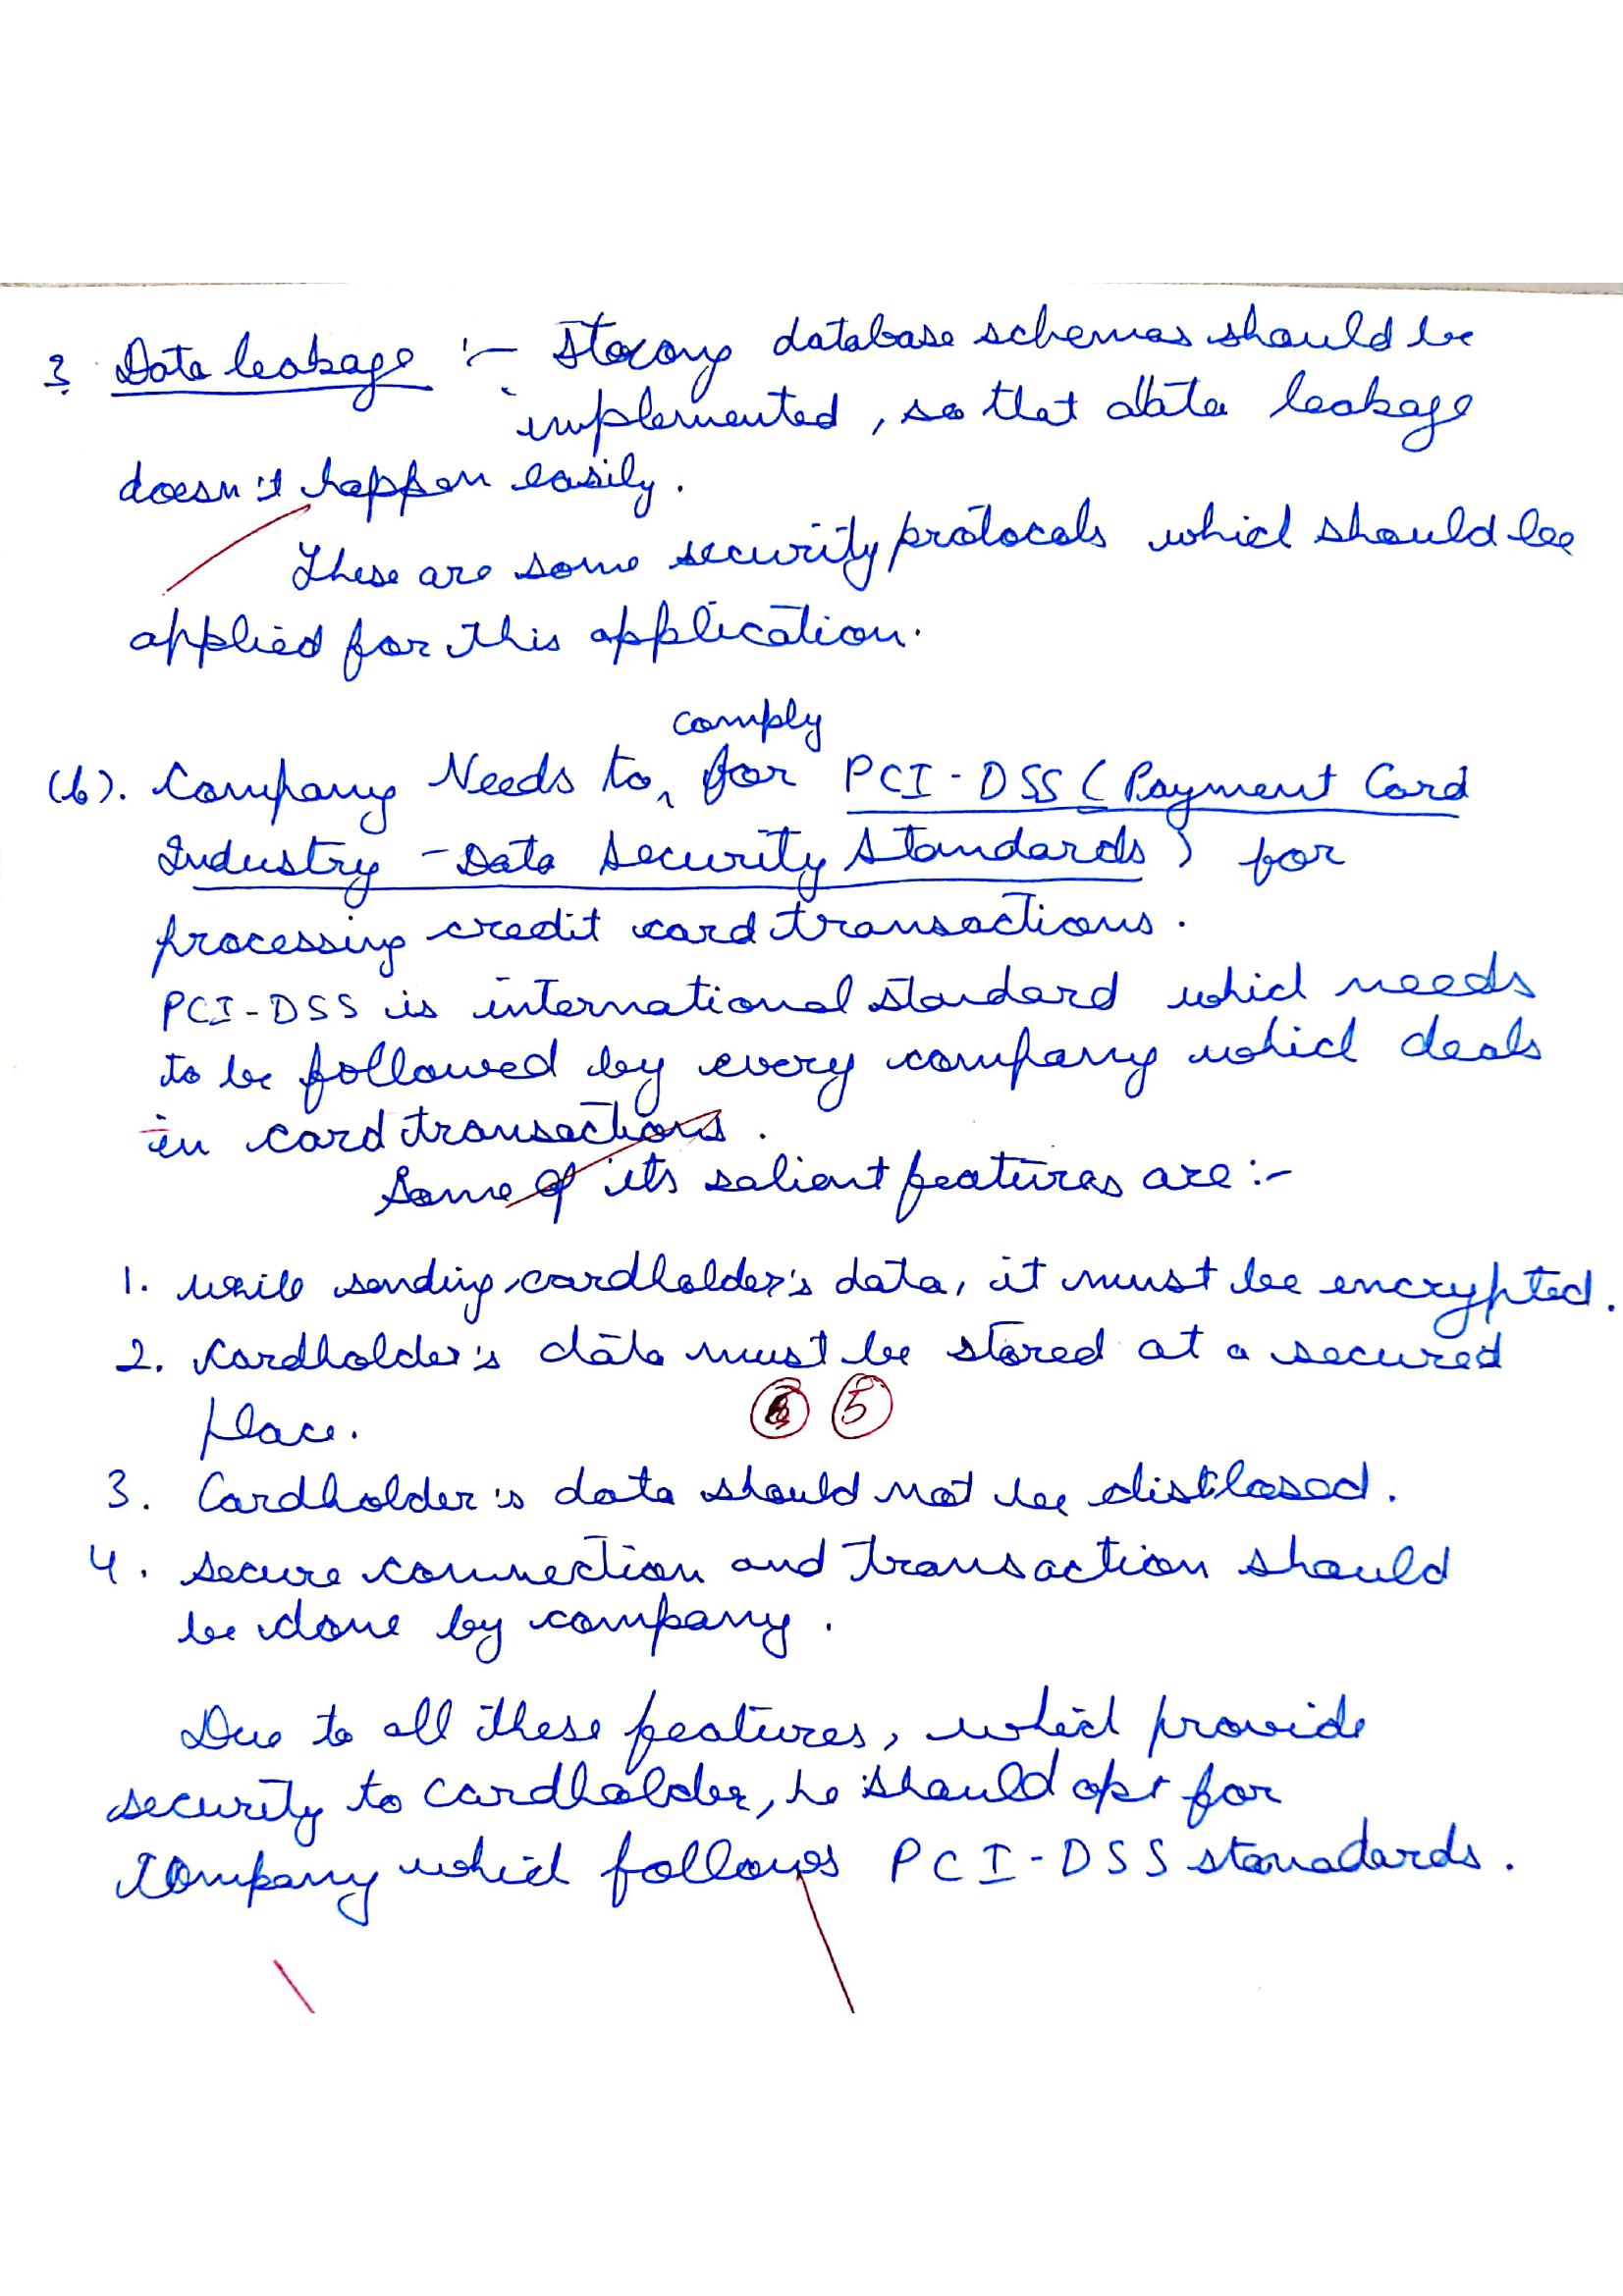 3. Data leakage :- Strong database schemas should be
implemented, so that data leakage
doesn't happen easily.
These are some security protocols which should be
applied for this application.
comply
(b). Company Needs to ^ for PCI-DSS (Payment Card
Industry - Data Security Standards) for
processing credit card transactions.
PCI-DSS is international standard which needs
to be followed by every company which deals
in card transactions.
Some of its salient features are:-
1. while sending cardholder's data, it must be encrypted.
2. Cardholder's data must be stored at a secured
place.
5
3. Cardholder's data should not be disclosed.
4. Secure connection and transaction should
be done by company.
Due to all these features, which provide
security to cardholder, he should opt for
Company which follows PCI-DSS stanadards.